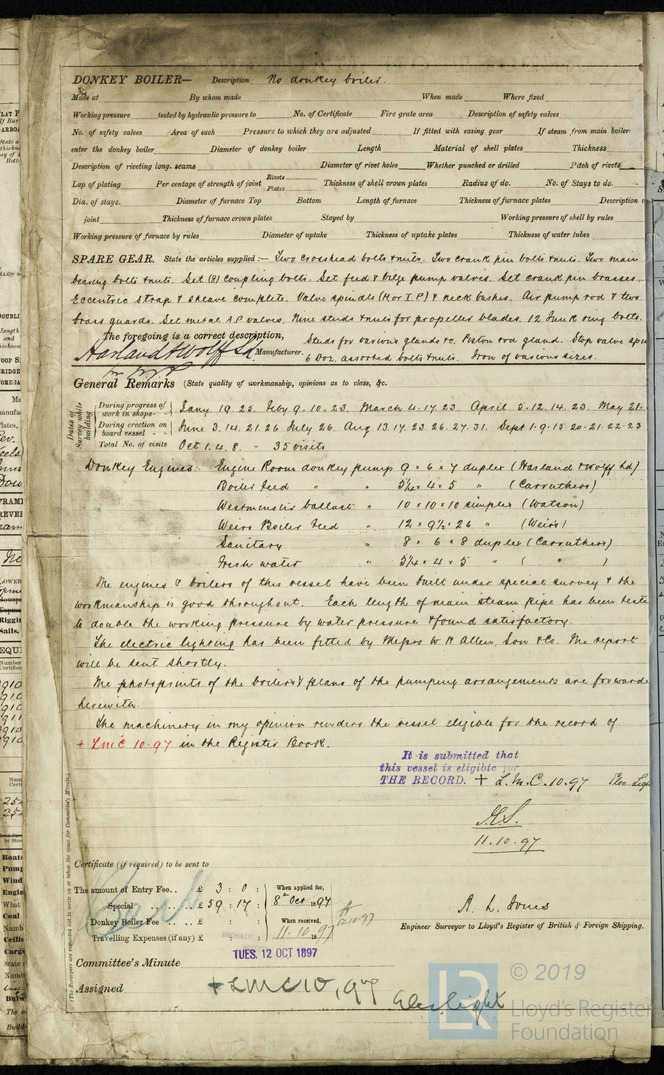 DONKEY BOILER— Description No donkey boiler.
Made at By whom made When made Where fixed
Working pressure tested by hydraulic pressure to No. of Certificate Fire grate area Description of safety valves
No. of safety valves Area of each Pressure to which they are adjusted If fitted with easing gear If steam from main boilers
enter the donkey boiler Diameter of donkey boiler Length Material of shell plates Thickness
Description of riveting long. seams Diameter of rivet holes Whether punched or drilled Pitch of rivets
Lap of plating Per centage of strength of joint Rivets Plates Thickness of shell crown plates Radius of do. No. of Stays to do.
Dia. of stays. Diameter of furnace Top Bottom Length of furnace Thickness of furnace plates Description o
joint Thickness of furnace crown plates Stayed by Working pressure of shell by rules
Working pressure of furnace by rules Diameter of uptake Thickness of uptake plates Thickness of water tubes
SPARE GEAR. State the articles supplied:— Two crosshead bolts & nuts. Two crank pin bolts & nuts. Two main
bearing bolts & nuts. Set (8) coupling bolts. Set feed & bilge pump valves. Set crank pin brasses.
Eccentric strap & sheave complete. Valve spindle (H or I.P.) & neck bushes. Air pump rod & two
brass guards. Set metal A.P. valves. Nine studs & nuts for propeller blades. 12 Junk ring bolts.
The foregoing is a correct description, Studs for various glands &c. Piston rod gland. Stop valve spin
Harland & Wolff Ld Manufacturer. 6 Doz. assorted bolts & nuts. Iron of various sizes.
General Remarks (State quality of workmanship, opinions as to class, &c.
Dates of Survey while building
During progress of work in shops - - Jany 19. 25. Feby 9. 10. 23. March 4. 17. 23 April 5. 12. 14. 23. May 21.
During erection on board vessel - - - June 3. 14. 21. 26 July 26. Aug 13. 17. 23 26. 27. 31. Sept 1. 9. 15. 20. 21. 22. 23
Total No. of visits Oct 1. 4. 8. - 35 visits
Donkey Engines:- Engine Room donkey pump 9 × 6 × 7 duplex (Harland & Wolff Ld)
Boiler feed " " 5¼ × 4 × 5 " (Carruthers)
Westminster ballast " 10 × 10 × 10 simplex (Watson)
Weirs Boiler feed " 12 × 9½ × 26 " (Weirs)
Sanitary " 8 × 6 × 8 duplex (Carruthers)
Fresh water " 5¼ × 4 × 5 " ( " )
The engines & boilers of this vessel have been built under special survey & the
workmanship is good throughout. Each length of main steam pipe has been teste
to double the working pressure by water pressure & found satisfactory.
The electric lighting has been fitted by Messrs W H Allen, Son & Co. The report
will be sent shortly.
The photoprints of the boilers & plans of the pumping arrangements are forwarde
herewith.
The machinery in my opinion renders the vessel eligible for the record of
+ LMC 10.97 in the Register Book.
It is submitted that
this vessel is eligible for
THE RECORD. + L.M.C. 10.97 Elec. Ligh
11.10.97
Certificate (if required) to be sent to
The amount of Entry Fee . . £ 3 : 0 : When applied for,
Special . . . . £ 39 : 17 : 8th Oct 1897
Donkey Boiler Fee . . . £ : : When received,
Travelling Expenses (if any) £ : : 11.10.1897
A. L. Jones
Engineer Surveyor to Lloyd's Register of British & Foreign Shipping.
Committee's Minute TUES. 12 OCT 1897
Assigned + LMC 10,97
Elec light
© 2019
LR
Lloyd's Register
Foundation